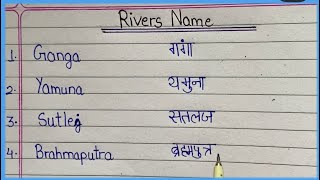 Rivers Name
1. Ganga गगां
2. Yamuna यमुना
3. Sutlej सतलज
4. Brahmaputra ब्रह्मपुत्र